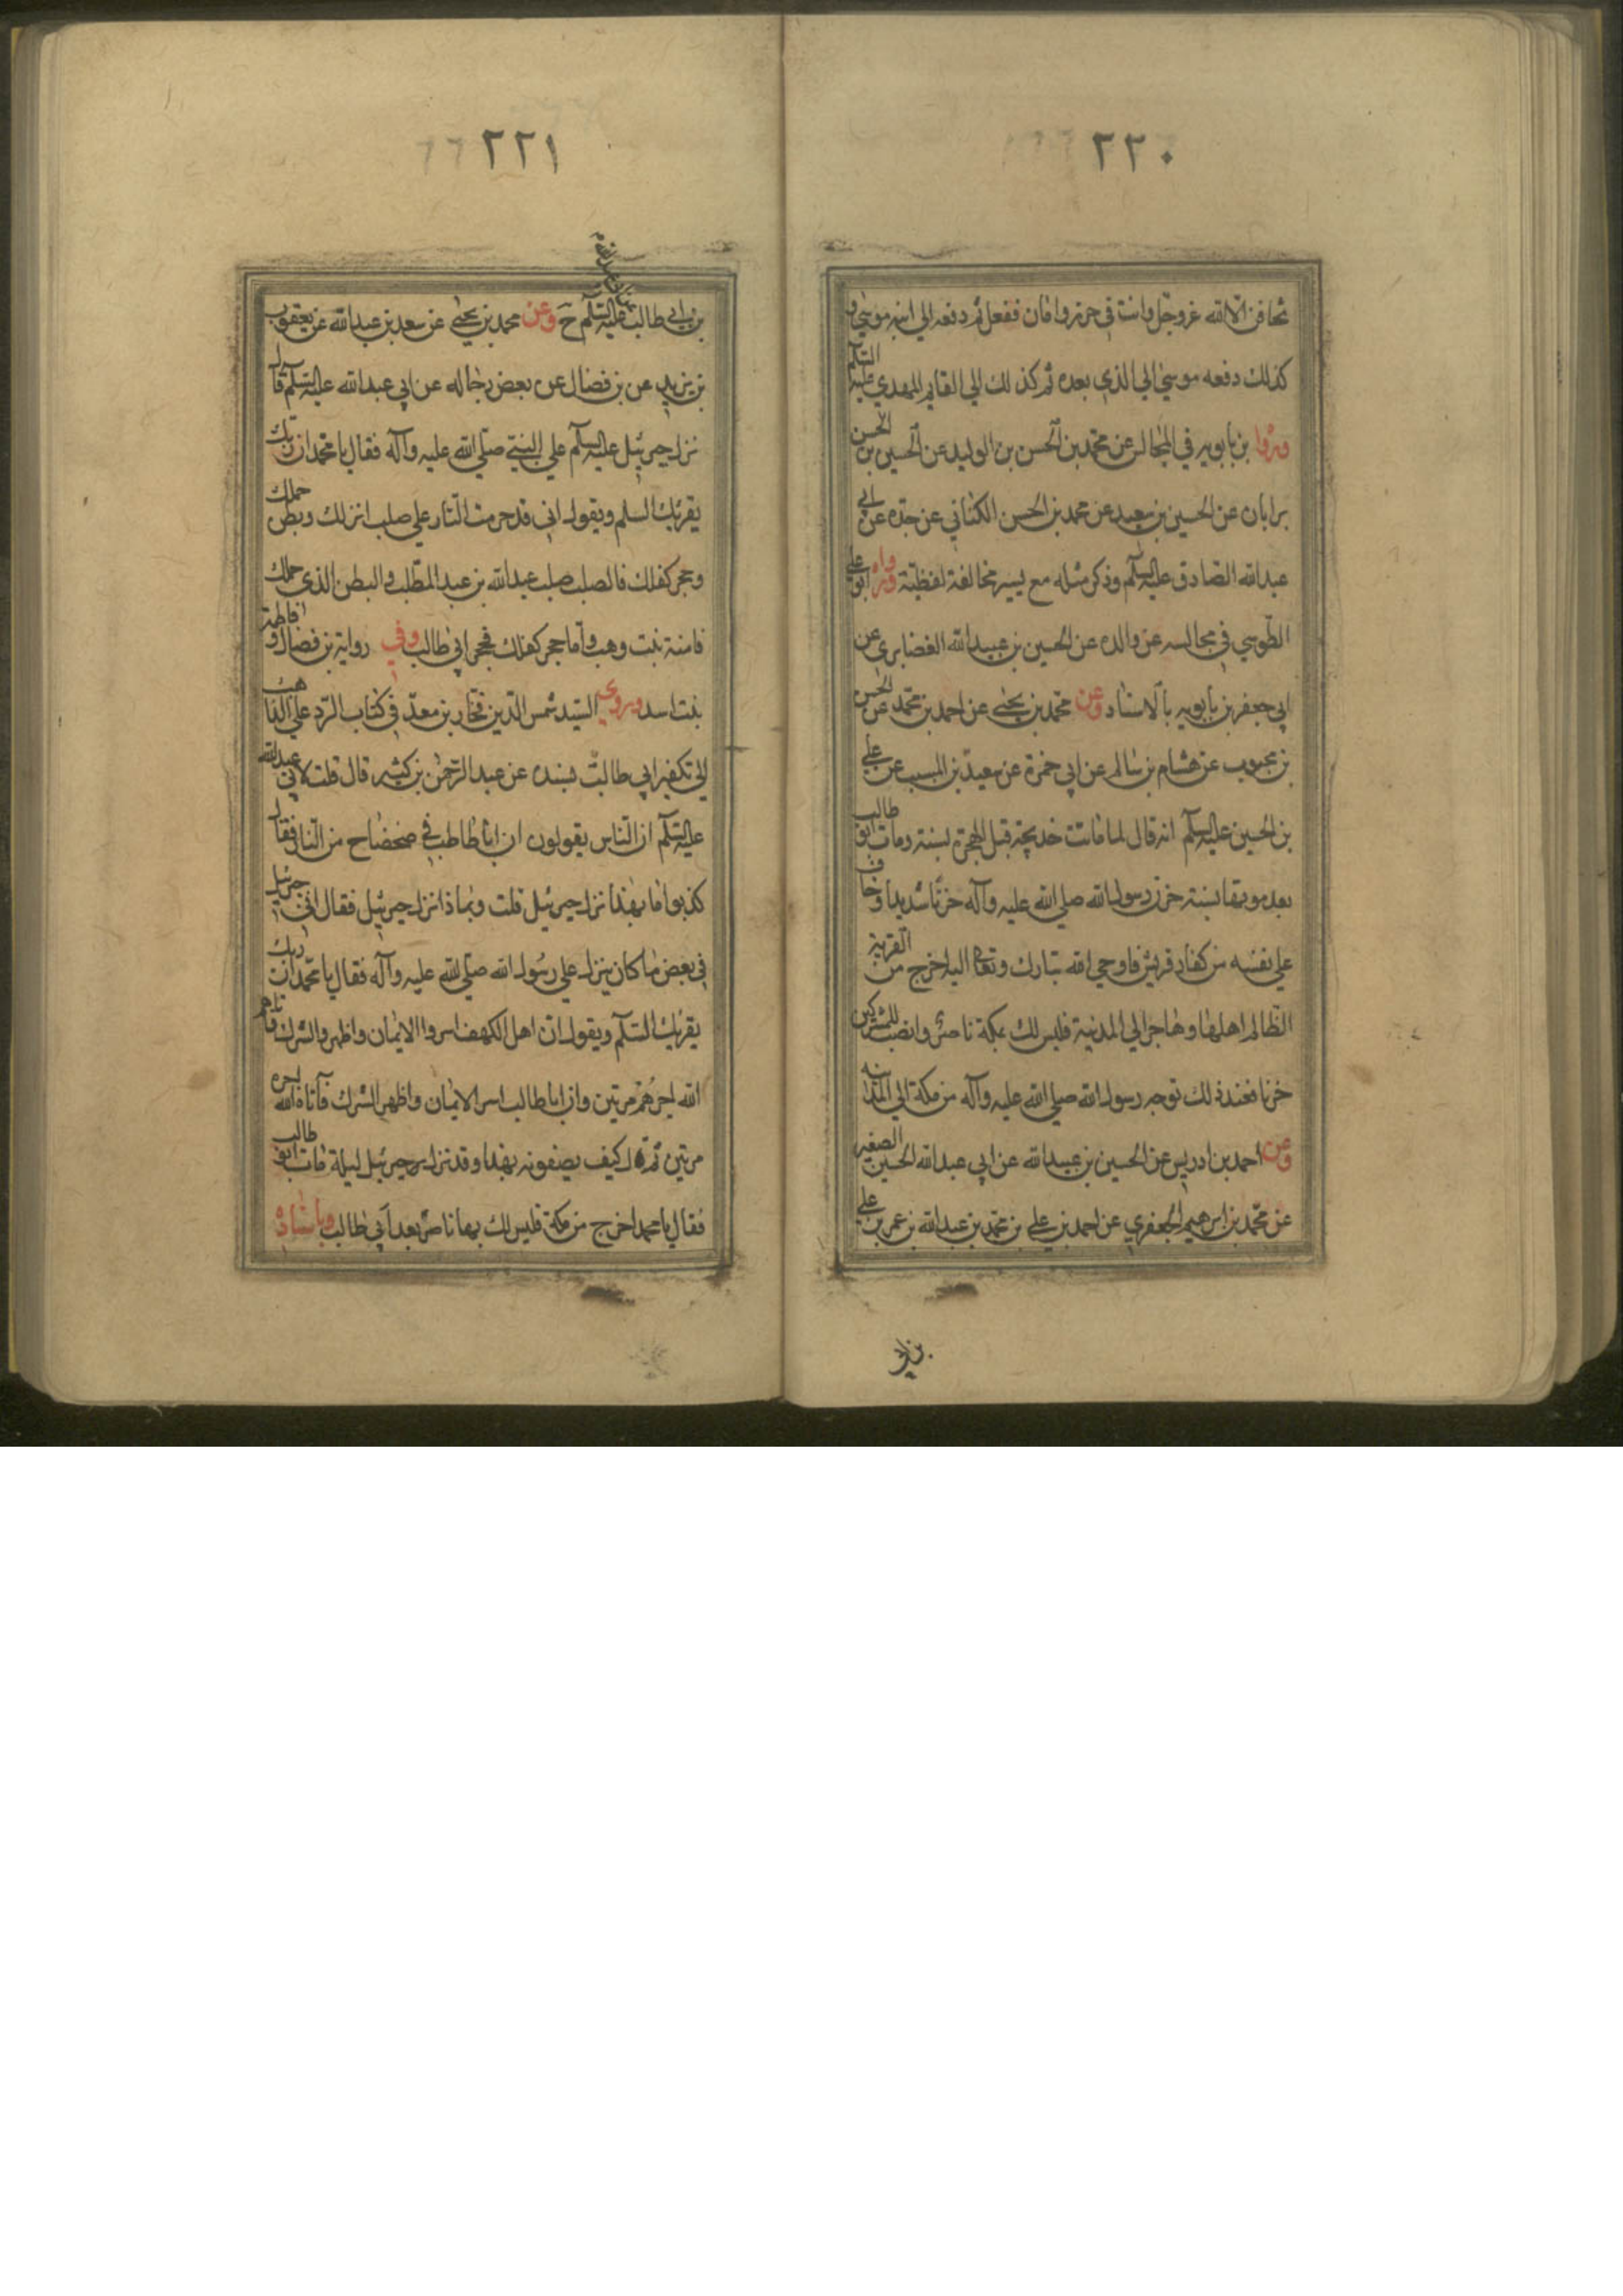 ٢٢٠
تخافن الا الله عز وجل وانت في حرز وامان ففعل ثم دفعه الي ابنه موسي و
كذلك دفعه موسي الي الذي بعده ثم كذلك الي القايم المهدي عليه السلم
وروا بن بابويه في المجالس عن محمد بن الحسن بن الوليد عن الحسين بن الحسن
بن ابان عن الحسين بن سعيد عن محمد بن الحسن الكناني عن جده عن ابي
عبد الله الصادق عليه السلم وذكر مثله مع يسير مخالفة لفظية ورواه ابو علي
الطوسي في مجالسه عن والده عن الحسين بن عبيد الله الغضايري عن
ابي جعفر بن بابويه بالاسناد وعن محمد بن يحيي عن احمد بن محمد عن الحسن
بن محبوب عن هشام بن سالم عن ابي حمزة عن سعيد بن المسيب عن علي
بن الحسين عليه السلم انه قال لما ماتت خديجة قبل الهجرة بسنة ومات ابو طالب
بعد موتها بسنة حزن رسول الله صلي الله عليه وآله حزنا شديدا وخاف
علي نفسه من كفار قريش فاوحي الله تبارك وتعالي اليه اخرج من القرية
الظالم اهلها وهاجر الي المدينة فليس لك بمكة ناصر وانصب للمشركين
حربا فعند ذلك توجه رسول الله صلي الله عليه وآله من مكة الي المدينة
وعن احمد بن ادريس عن الحسين بن عبيد الله عن ابي عبد الله الحسين الصغير
عن محمد بن ابرهيم الجعفري عن احمد بن علي بن محمد بن عبد الله بن عمر بن علي
بن ابي
٢٢١
بن ابي طالب عليه السلم ح وعن محمد بن يحيي عن سعد بن عبد الله عن يعقوب
بن يزيد عن بن فضال عن بعض رجاله عن ابي عبد الله عليه السلم قال
نزل جبرئيل عليه السلم علي النبي صلي الله عليه وآله فقال يا محمد ان ربك
يقرئك السلم ويقول اني قد حرمت النار علي صلب انزلك وبطن حملك
وحجر كفلك فالصلب صلب عبد الله بن عبد المطلب والبطن الذي حملك
فامنة بنت وهب واما حجر كفلك فحجر ابي طالب وفي رواية بن فضال و فاطمة
بنت اسد وروي السيد شمس الدين فخار بن معد في كتاب الرد علي الذاهب
الي تكفير ابي طالب بسنده عن عبد الرحمن بن كثير قال قلت لابي عبد الله
عليه السلم ان الناس يقولون ان ابا طالب في ضحضاح من النار فقال
كذبوا ما بهذا نزل جبرئيل قلت وبما ذا نزل جبرئيل فقال اتي جبرئيل
في بعض ما كان ينزل علي رسول الله صلي الله عليه وآله فقال يا محمد ان ربك
يقرئك السلم ويقول ان اهل الكهف اسروا الايمان واظهروا الشرك فآتاهم
الله اجرهم مرتين وان ابا طالب اسر الايمان واظهر الشرك فآتاه الله اجره
مرتين ثم قال كيف يصفونه بهذا وقد نزل جبرئيل ليلة مات ابو طالب
فقال يا محمد اخرج من مكة فليس لك بها ناصر بعد ابي طالب وباسناده